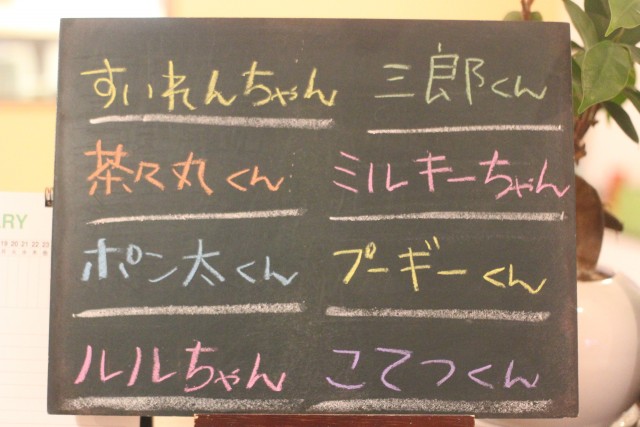 すいれんちゃん 三郎くん
茶々丸くん ミルキーちゃん
ポン太くん プーギーくん
ルルちゃん こてつくん
ARY
19 20 21 22 23